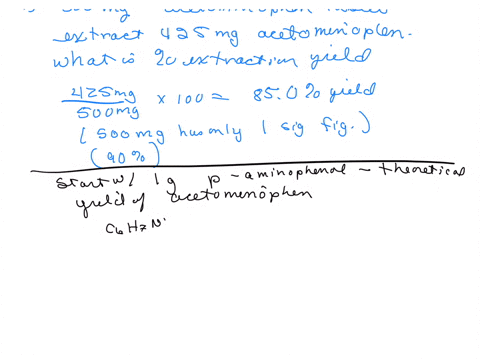 500 mg acetominophen
extract 425 mg acetominophen.
what is % extraction yield
425mg/500mg x 100 = 85.0% yield
(500 mg has only 1 sig fig.)
(90%)
start w/ 1g p-aminophenol - theoretical
yield of acetomenophen
C6H7N